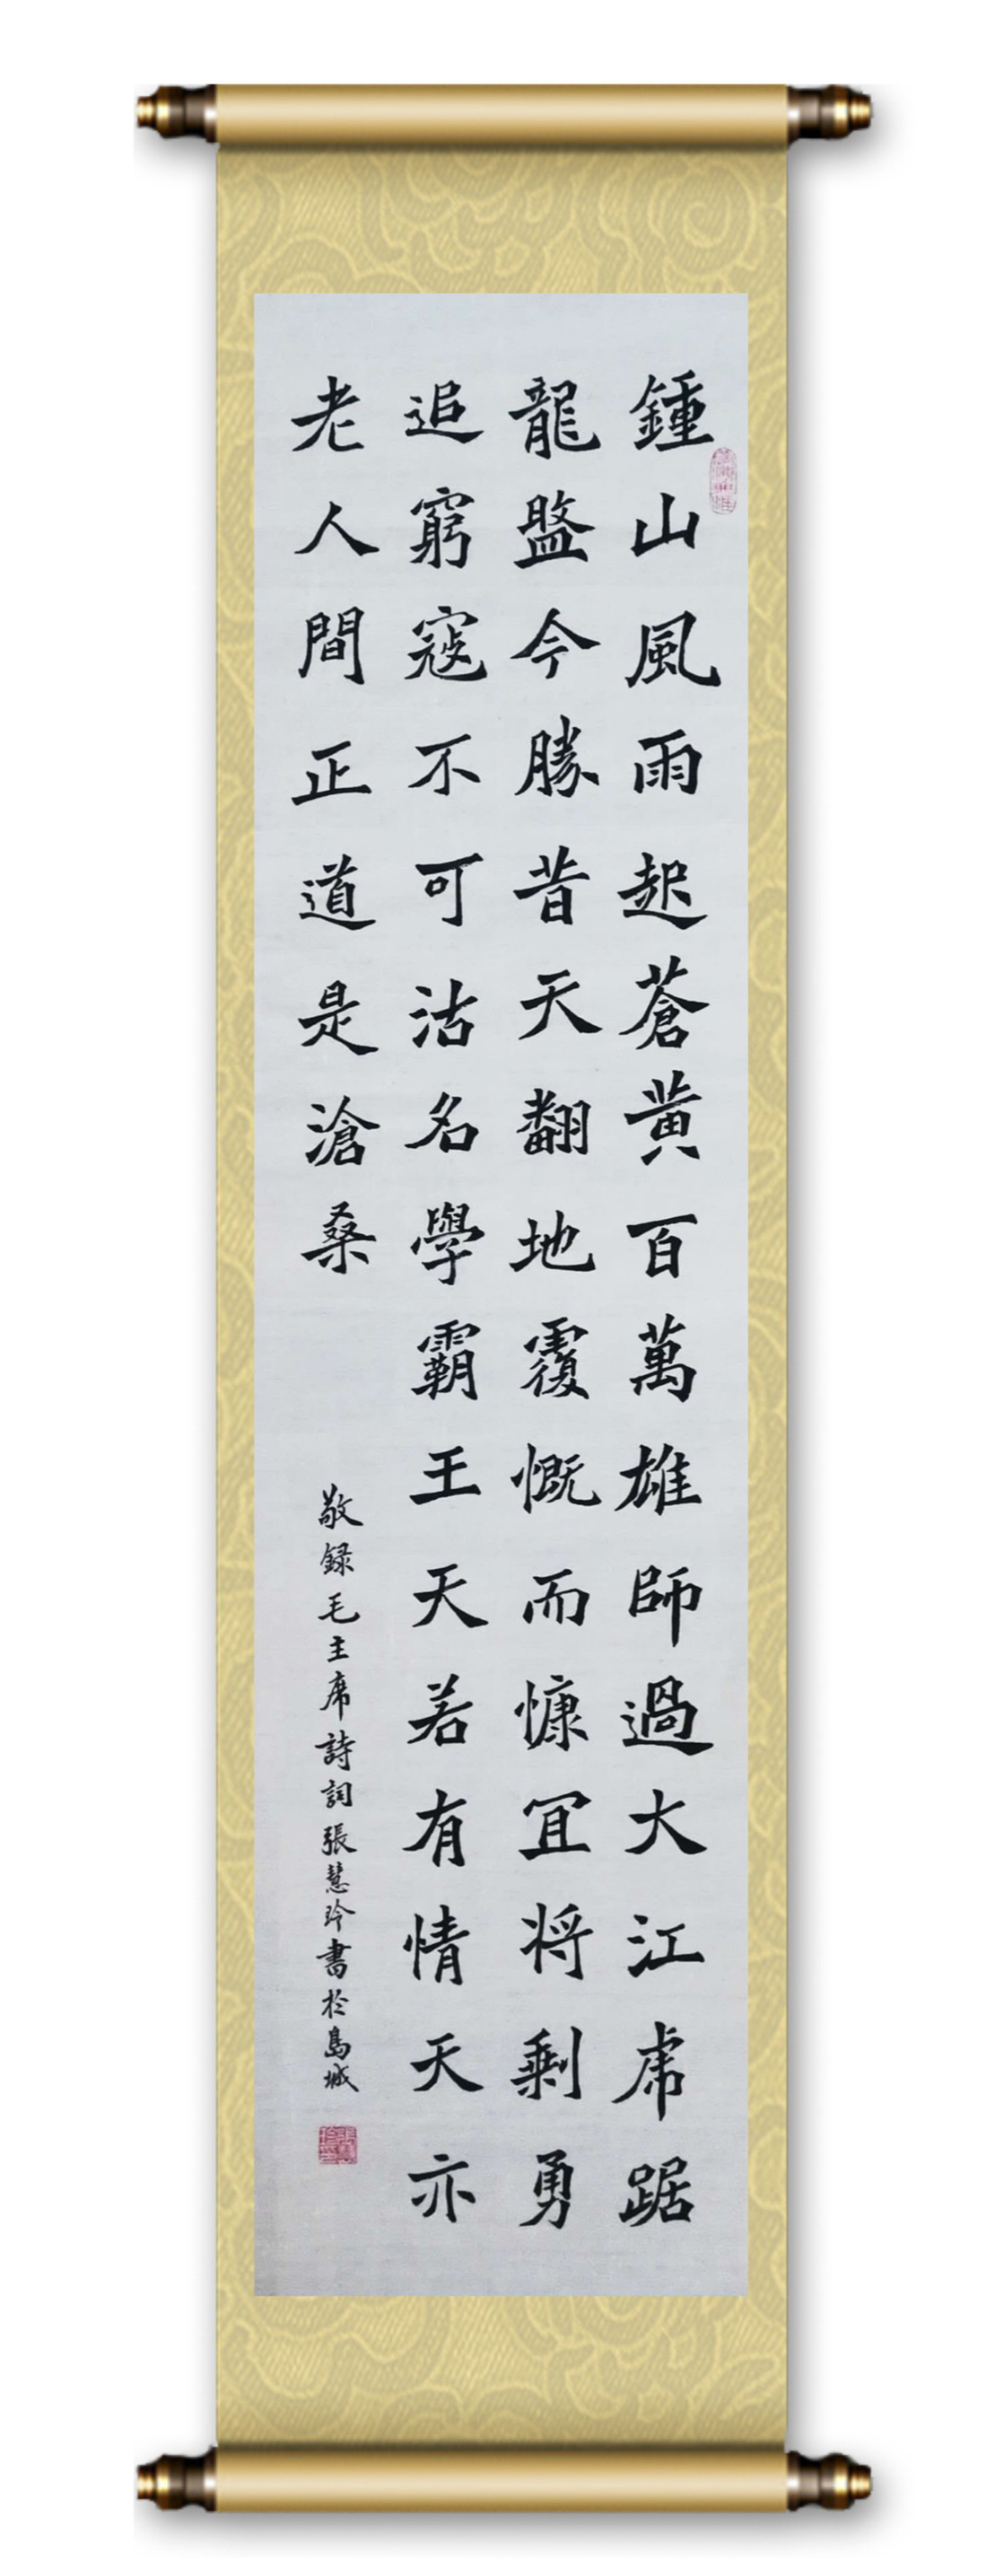 鍾山風雨起蒼黄百萬雄師過大江虎踞
龍盤今勝昔天翻地覆慨而慷宜将剩勇
追窮寇不可沽名學霸王天若有情天亦
老人間正道是滄桑
敬録毛主席詩詞張慧玲書於島城